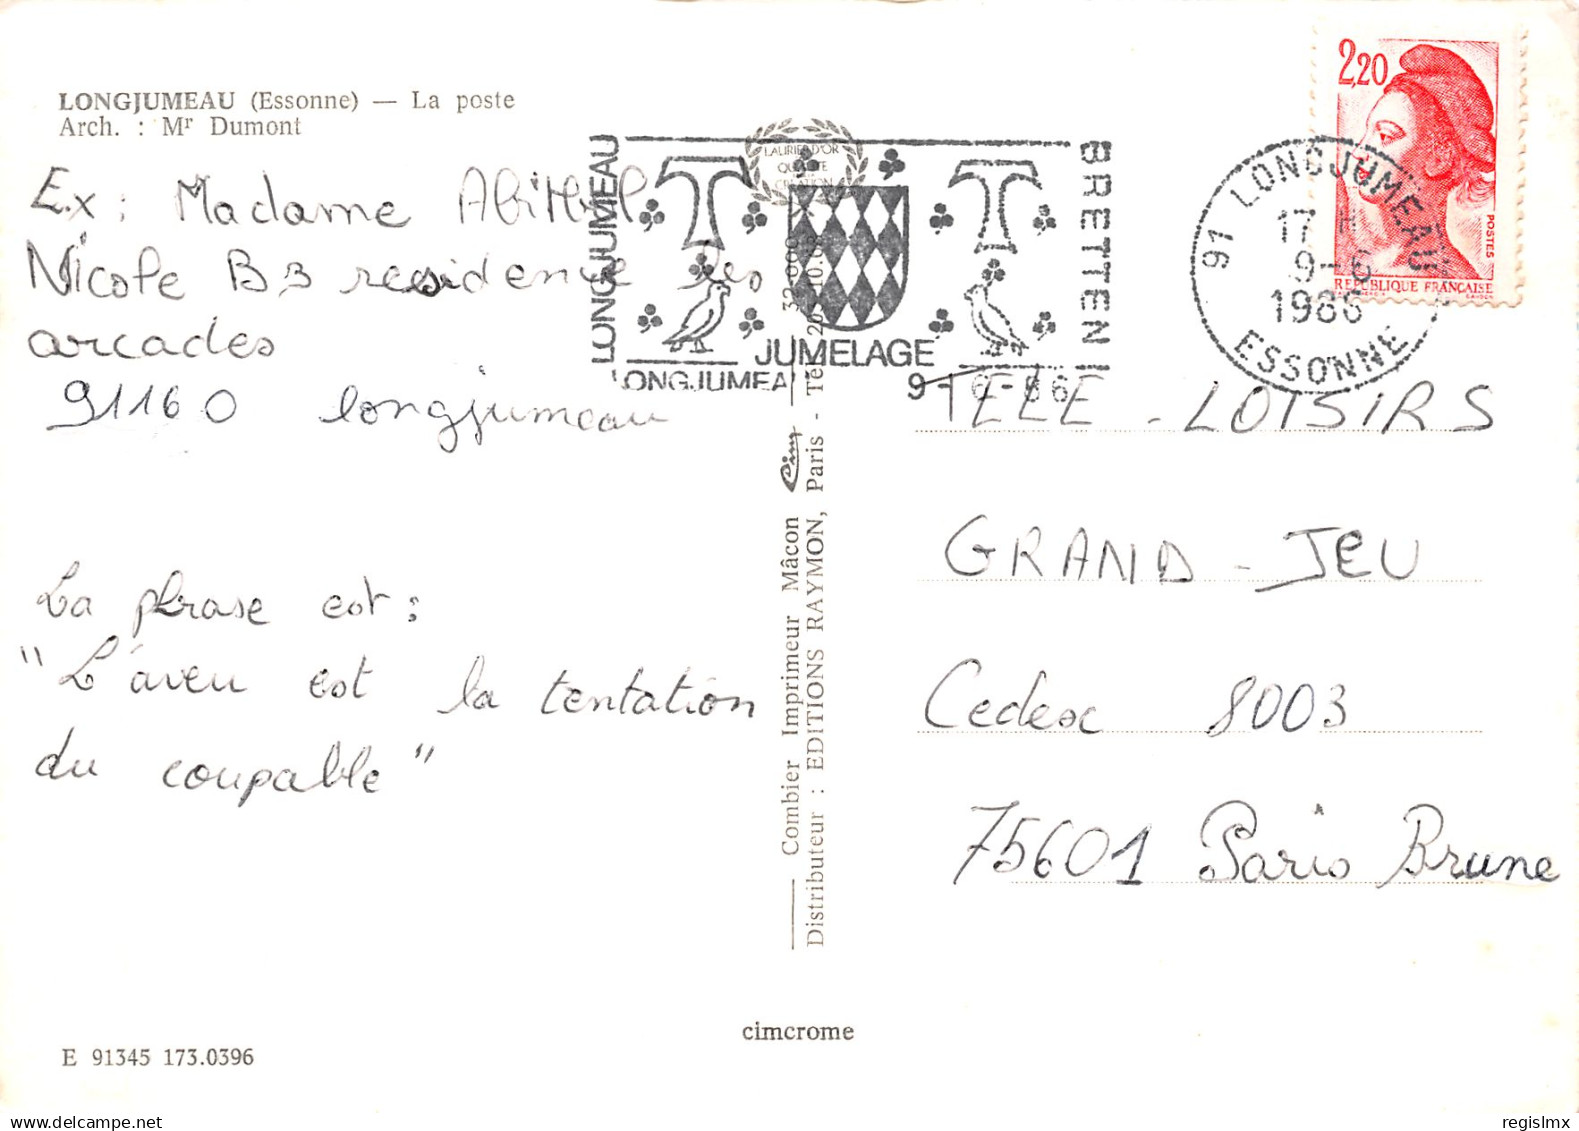 LONGJUMEAU (Essonne) — La poste
Arch. : Mr Dumont
Ex : Madame Abitbol
Nicole B3 residence les
arcades
91160 longjumeau
La phrase est :
"L'aveu est la tentation
du coupable"
E 91345 173.0396
LAURIER D'OR
QUALITE
CREATION
LONGJUMEAU
BRETTEN
JUMELAGE
LONGJUMEA
9-6-86
Combier Imprimeur Mâcon Cim
Distributeur : EDITIONS RAYMON, Paris - Tél.
cimcrome
2,20
POSTES
REPUBLIQUE FRANÇAISE
91 LONGJUMEAU
17 H
9-6
1986
ESSONNE
TELE - LOISIRS
GRAND - JEU
Cedex 8003
75601 Paris Brune
delcampe.net
regislmx